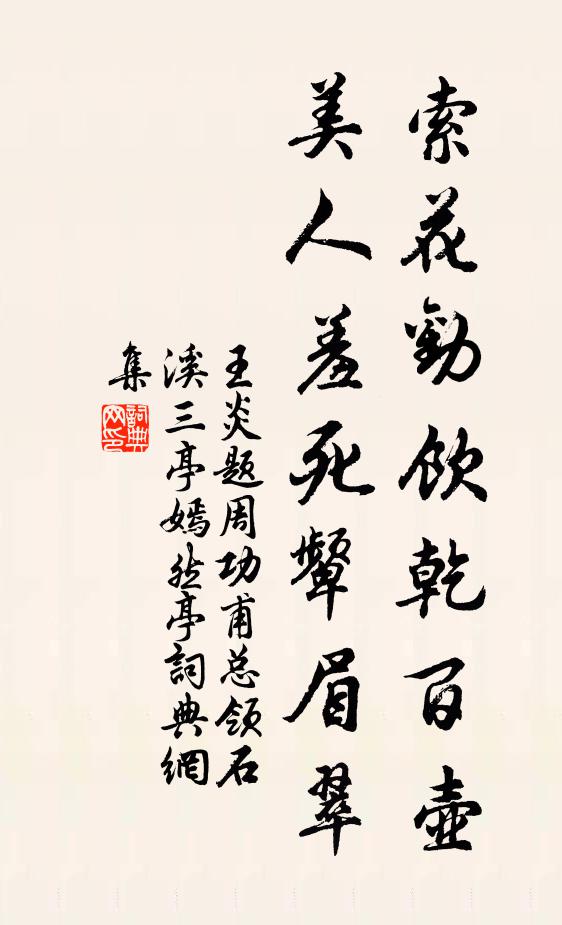 索花勸飲乾百壺
美人羞死顰眉翠
王炎题周功甫总领石
溪三亭嫣然亭詞典網
集
詞典
网印